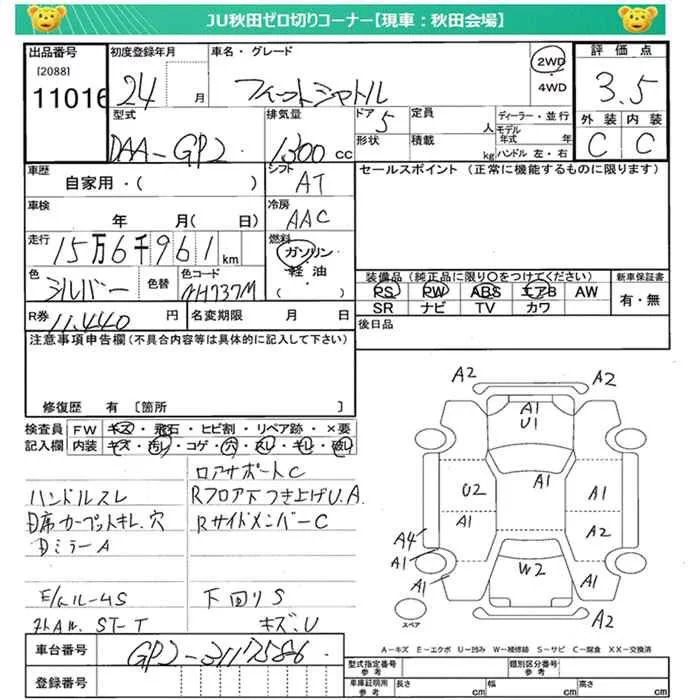 JU秋田ゼロ切りコーナー【現車：秋田会場】
出品番号
[2088]
11016
初度登録年月
24 月
車名・グレード
フィットシャトル
2WD
・
4WD
評価点
3.5
型式
DAA-GP2
排気量
1300 cc
ドア
5
形状
定員
人
積載
kg
ディーラー・並行
モデル年式 年
ハンドル 左・右
外装
内装
C
C
車歴
自家用・( )
シフト
AT
セールスポイント (正常に機能するものに限ります)
車検
年 月( 日)
冷房
AAC
走行
15万6千961 km
燃料
ガソリン
・
軽油
( )
色
シルバー
色替
色コード
NH737M
装備品 (純正品に限り○をつけてください)
PS PW ABS エアB AW
SR ナビ TV カワ
新車保証書
有・無
R券
11.440 円
名変期限 月 日
後日品
注意事項申告欄 (不具合内容等は具体的に記入して下さい)
修復歴 有 〔箇所 〕
検査員
記入欄
FW キズ・飛石・ヒビ割・リペア跡・×要
内装 キズ・汚レ・コゲ・穴・スレ・キレ・破レ
ロアサポートC
ハンドルスレ
Rフロア下つき上げU.A.
D席カーペットキレ.穴
RサイドメンバーC
DミラーA
E/ルームS
下回りS
ST-T
キズ、U
A2
A2
A1
U1
A1
U2
A1
A1
A2
A4
A1
A1
W2
A1
A2
スペア
A-キズ E-エクボ U-凹み W-補修跡 S-サビ C-腐食 XX-交換済
車台番号
GP2-3117586
登録番号
型式指定番号
参考
類別区分番号
参考
車庫証明用
参考
長さ cm
幅 cm
高さ cm